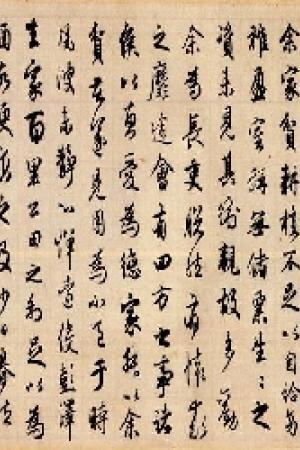 余家貧耕植不足以自給幼
稚盈室缾無儲粟生〻之
資未見其術親故多勸
余為長吏脫然有懷求
之靡途會有四方之事諸
侯以惠愛為德家叔以余
貧苦遂見用為小邑于時
風波未靜心憚遠役彭澤
去家百里公田之利足以為
酒故便求之及少日眷然